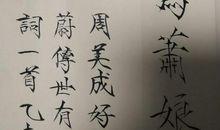 為蕭娘
周美成好
蔚傳世有
詞一首乙